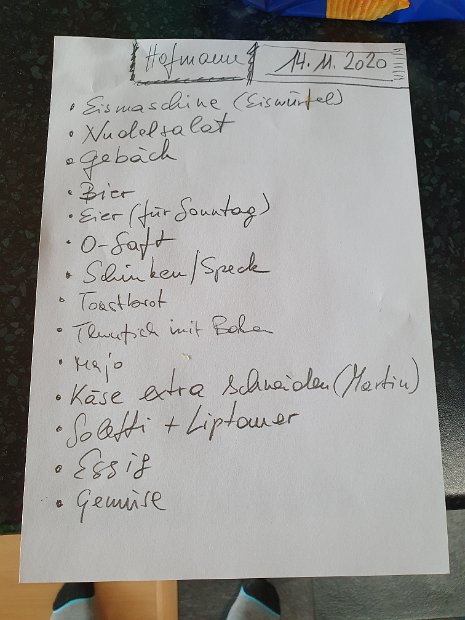 Hofmann 14.11.2020
• Eismaschine (Eiswürfel)
• Nudelsalat
• Gebäck
• Bier
• Eier (für Sonntag)
• O-Saft
• Schinken/Speck
• Toastbrot
• Thunfisch mit Bohnen
• Majo
• Käse extra schneiden (Martin)
• Soletti + Liptauer
• Essig
• Gemüse